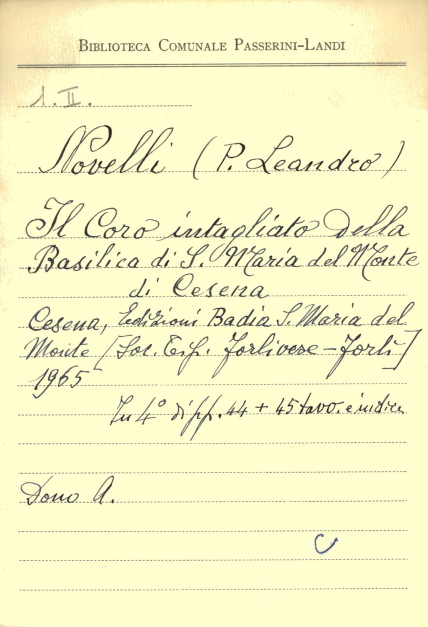 BIBLIOTECA COMUNALE PASSERINI-LANDI
1.II.
Novelli (P. Leandro)
Il Coro intagliato della
Basilica di S. Maria del Monte
di Cesena
Cesena, Edizioni Badia S. Maria del
Monte [Soc. Tip. Forlivese - Forlì]
1965
In 4° di pp. 44 + 45 tavo. e indice
Dono A.
C